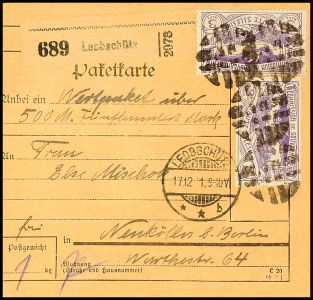 689 Leobschütz 2078
Paketkarte
Anbei ein Wertpaket über
500 M. Fünfhundert Mark
An Frau
Else Mischok
LEOBSCHÜTZ
17.12 1.9-10V
* * b
bei Neukölln b. Berlin
Postgewicht
Wohnung
(Straße und Hausnummer)
Warthestr. 64
kg
C 20